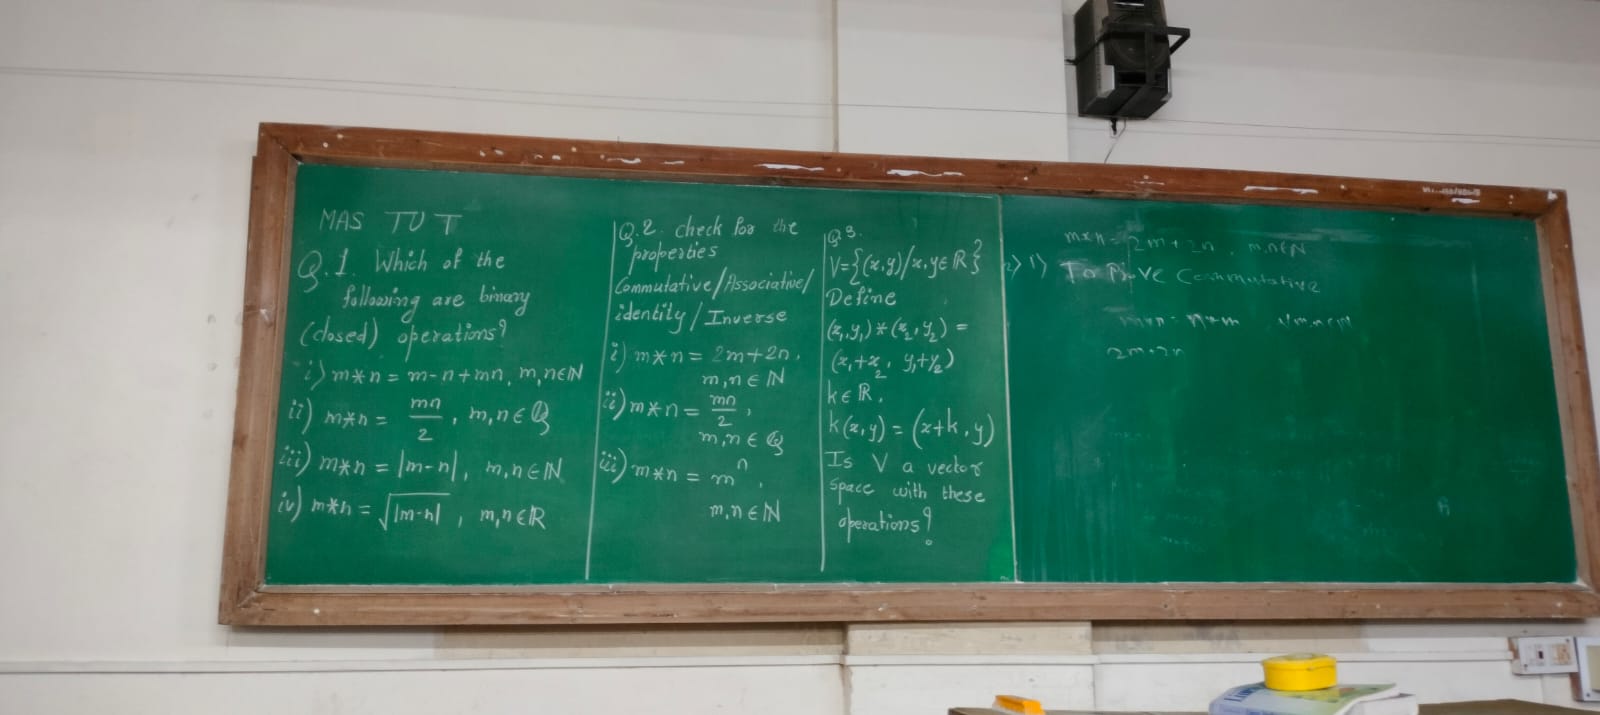 MAS TUT
Q.1. Which of the
following are binary
(closed) operations?
i) m*n = m-n+mn, m,n∈ℕ
ii) m*n = mn/2, m,n∈ℚ
iii) m*n = |m-n|, m,n∈ℕ
iv) m*n = √|m-n|, m,n∈ℝ
Q.2. check for the
properties
Commutative/Associative/
identity/Inverse
i) m*n = 2m+2n,
m,n∈ℕ
ii) m*n = mn/2,
m,n∈ℚ
iii) m*n = mⁿ,
m,n∈ℕ
Q3.
V={(x,y)/x,y∈ℝ}
Define
(x₁,y₁)*(x₂,y₂) =
(x₁+x₂, y₁+y₂)
k∈ℝ,
k(x,y) = (x+k,y)
Is V a vector
space with these
operations?
m*n = 2m+2n, m,n∈N
2) 1) To Prove Commutative
m*n = n*m ∀m,n∈N
2m+2n